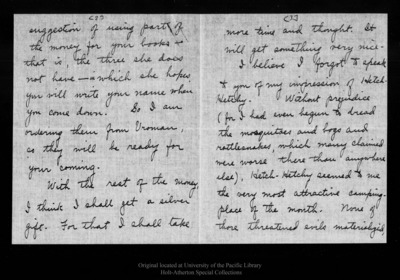 (2)
suggestion of using part of
the money for your books –
that is, the three she does
not have – in which she hopes
you will write your name when
you come down. So I am
ordering them from Vroman,
so they will be ready for
your coming.
With the rest of the money,
I think I shall get a silver
gift. For that I shall take
(3)
more time and thought. It
will get something very nice.
I believe I forgot to speak
to you of my impression of Hetch-
Hetchy. Without prejudice
(for I had even begun to dread
the mosquitoes and hogs and
rattlesnakes, which many claimed
were worse there than anywhere
else), Hetch-Hetchy seemed to me
the very most attractive camping-
place of the month. None of
those threatened evils materialized,
Original located at University of the Pacific Library
Holt-Atherton Special Collections